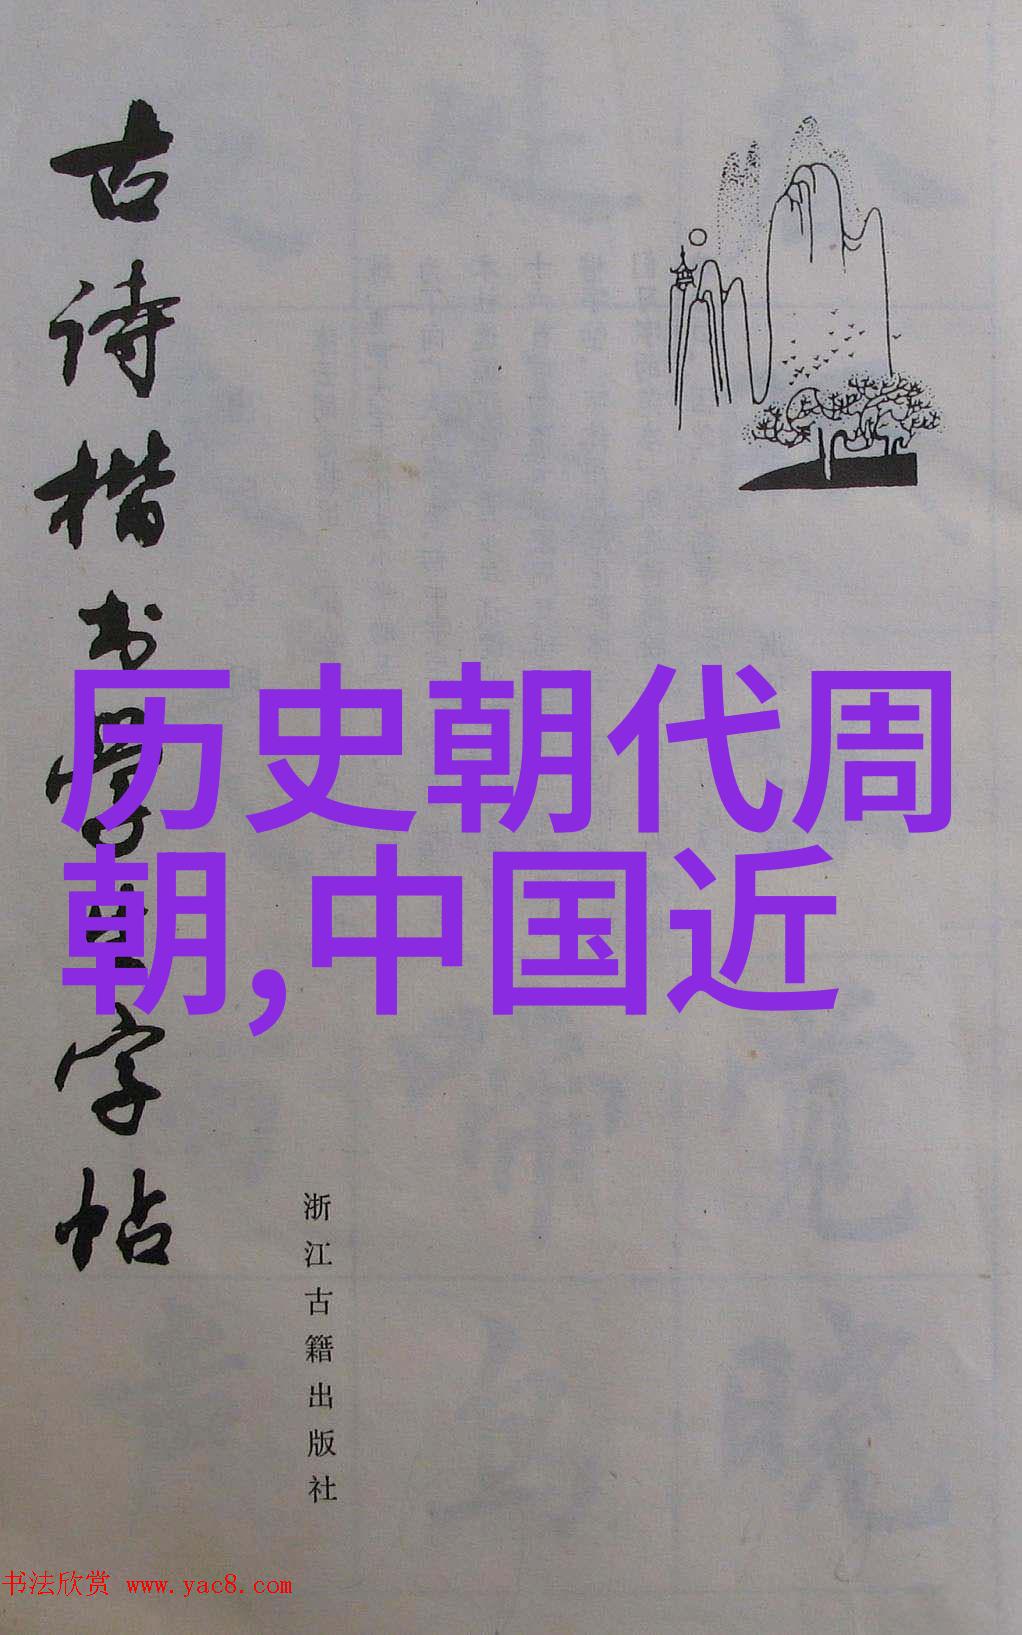 古诗楷书学生字帖
历史朝代周
朝,中国近
浙江古籍出版社
书法欣赏 www.yac8.com